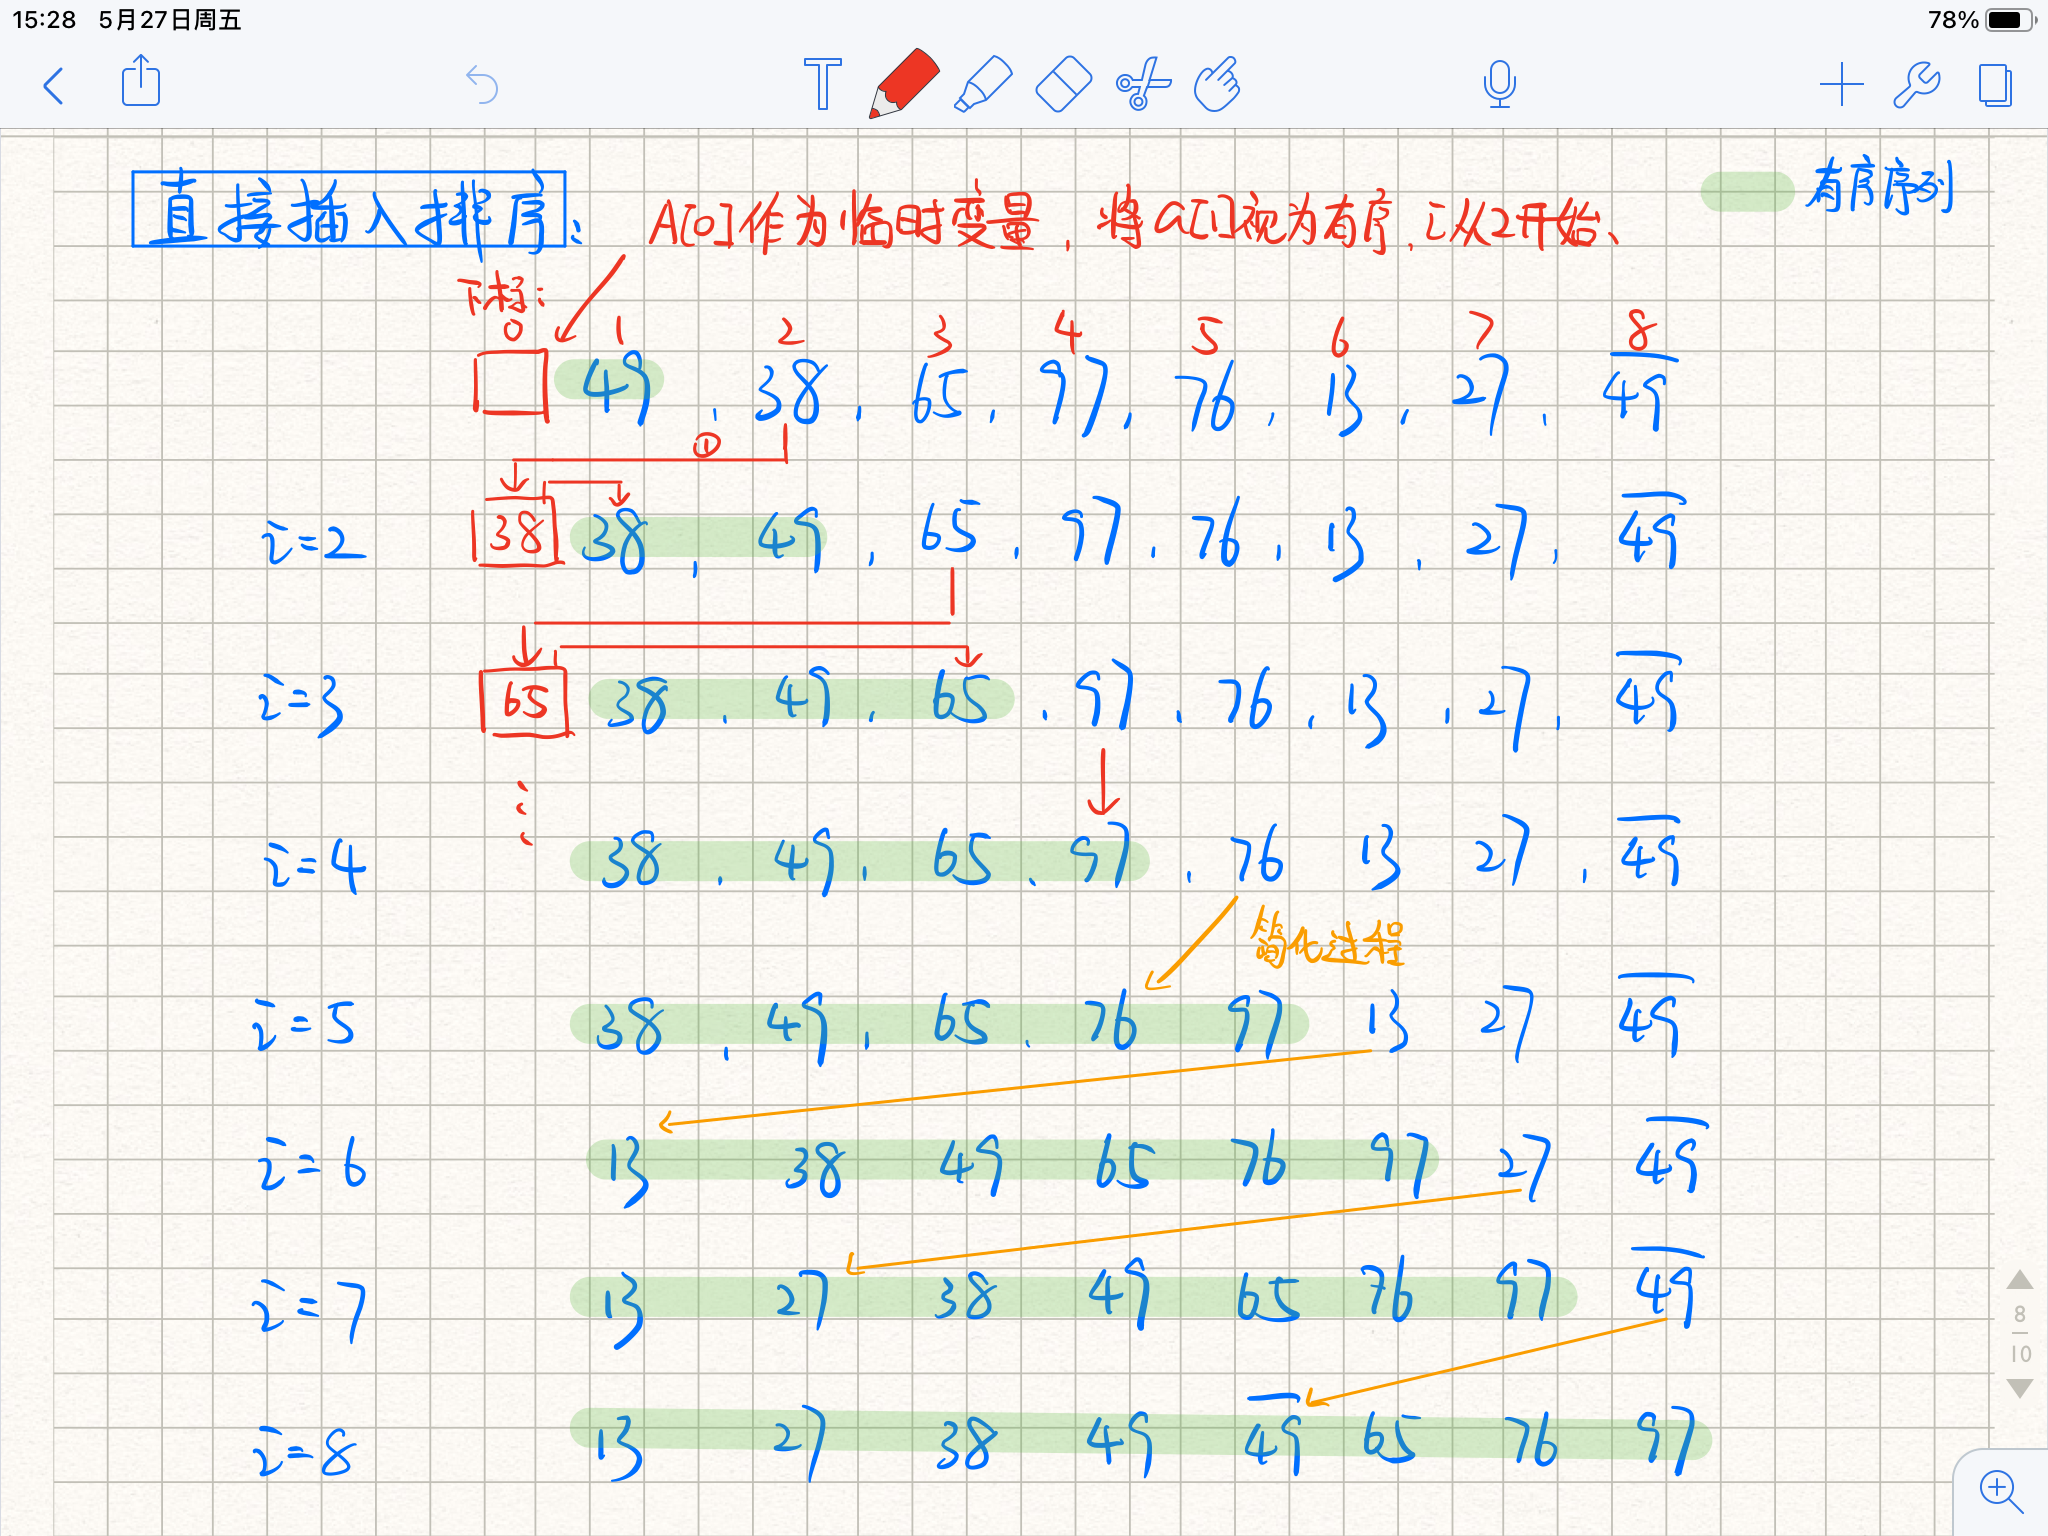 15:28 5月27日周五 78%
T
直接插入排序: A[0]作为临时变量，将a[1]视为有序，i从2开始、 有序序列
下标:
0 1 2 3 4 5 6 7 8
49 , 38 , 65 , 97 , 76 , 13 , 27 , 4̅9̅
①
i=2 38 38 , 49 , 65 , 97 , 76 , 13 , 27 , 4̅9̅
i=3 65 38 , 49 , 65 , 97 , 76 , 13 , 27 , 4̅9̅
i=4 38 , 49 , 65 , 97 , 76 13 27 , 4̅9̅
简化过程
i=5 38 , 49 , 65 , 76 97 13 27 4̅9̅
i=6 13 38 49 65 76 97 27 4̅9̅
i=7 13 27 38 49 65 76 97 4̅9̅
i=8 13 27 38 49 4̅9̅ 65 76 97
8
10